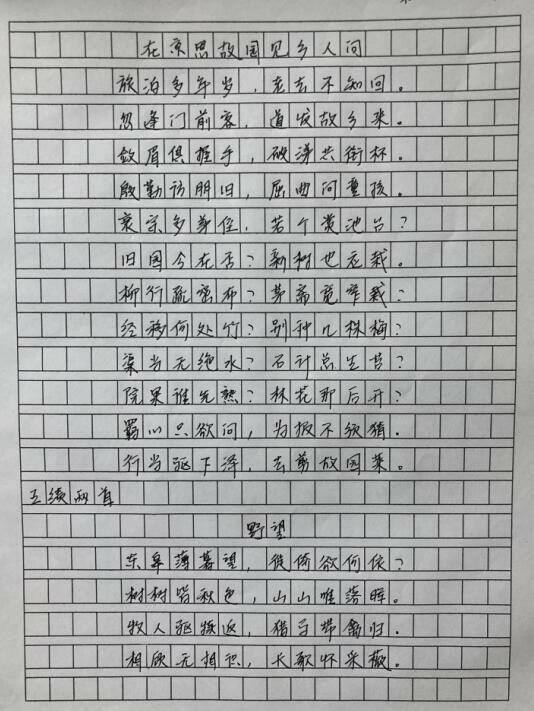 在京思故园见乡人问
旅泊多年岁，老去不知回。
忽逢门前客，道发故乡来。
敛眉俱握手，破涕共衔杯。
殷勤访朋旧，屈曲问童孩。
衰宗多弟侄，若个赏池台？
旧园今在否？新树也应栽。
柳行疏密布？茅斋宽窄裁？
经移何处竹？别种几株梅？
渠当无绝水？石计总生苔？
院果谁先熟？林花那后开？
羁心只欲问，为报不须猜。
行当驱下泽，去剪故园莱。
王绩两首
野望
东皋薄暮望，徙倚欲何依？
树树皆秋色，山山唯落晖。
牧人驱犊返，猎马带禽归。
相顾无相识，长歌怀采薇。